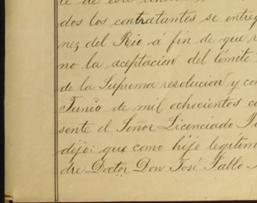 de este
dos los contratantes se entreg
nez del Rio á fin de que r
no la aceptacion del límite
de la Suprema resolucion y con
Junio de mil ochocientos c
sente el Señor Licenciado
dijo: que como hijo legítim
dre Doctor Don José Pablo